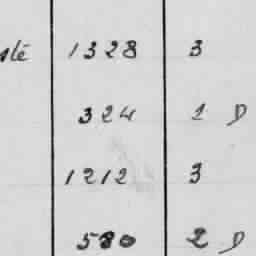 1328 3
324 1 D
1212 3
580 2 D